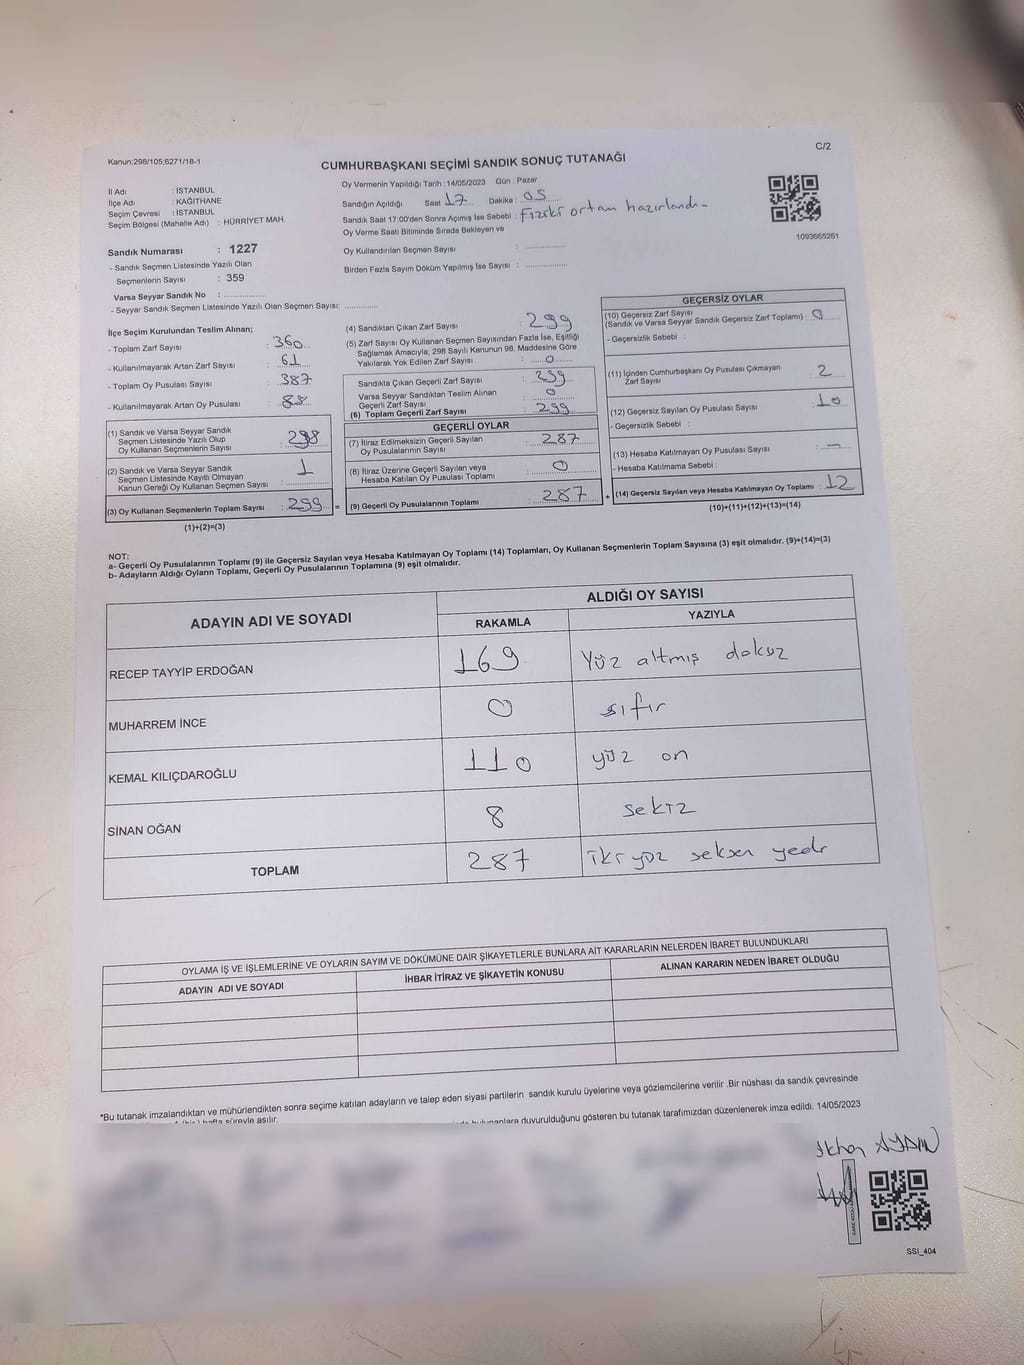 Kanun;298/105;6271/18-1
C/2
CUMHURBAŞKANI SEÇİMİ SANDIK SONUÇ TUTANAĞI
İl Adı : İSTANBUL
İlçe Adı : KAĞITHANE
Seçim Çevresi : İSTANBUL
Seçim Bölgesi (Mahalle Adı) : HÜRRİYET MAH.
Sandık Numarası : 1227
- Sandık Seçmen Listesinde Yazılı Olan
Seçmenlerin Sayısı : 359
Varsa Seyyar Sandık No :
- Seyyar Sandık Seçmen Listesinde Yazılı Olan Seçmen Sayısı:
Oy Vermenin Yapıldığı Tarih :14/05/2023 Gün : Pazar
Sandığın Açıldığı Saat 17 Dakika : 05
Sandık Saat 17:00'den Sonra Açılmış İse Sebebi : Fiziki ortam hazırlandı-
Oy Verme Saati Bitiminde Sırada Bekleyen ve
Oy Kullandırılan Seçmen Sayısı :
Birden Fazla Sayım Döküm Yapılmış İse Sayısı :
1093665261
İlçe Seçim Kurulundan Teslim Alınan;
- Toplam Zarf Sayısı : 360
- Kullanılmayarak Artan Zarf Sayısı : 61
- Toplam Oy Pusulası Sayısı : 387
- Kullanılmayarak Artan Oy Pusulası : 88
(1) Sandık ve Varsa Seyyar Sandık
Seçmen Listesinde Yazılı Olup
Oy Kullanan Seçmenlerin Sayısı : 298
(2) Sandık ve Varsa Seyyar Sandık
Seçmen Listesinde Kayıtlı Olmayan
Kanun Gereği Oy Kullanan Seçmen Sayısı : 1
(3) Oy Kullanan Seçmenlerin Toplam Sayısı : 299
(1)+(2)=(3)
(4) Sandıktan Çıkan Zarf Sayısı : 299
(5) Zarf Sayısı Oy Kullanan Seçmen Sayısından Fazla İse, Eşitliği
Sağlamak Amacıyla; 298 Sayılı Kanunun 98. Maddesine Göre
Yakılarak Yok Edilen Zarf Sayısı : 0
Sandıkta Çıkan Geçerli Zarf Sayısı : 299
Varsa Seyyar Sandıktan Teslim Alınan
Geçerli Zarf Sayısı : 0
(6) Toplam Geçerli Zarf Sayısı : 299
GEÇERLİ OYLAR
(7) İtiraz Edilmeksizin Geçerli Sayılan
Oy Pusulasının Sayısı : 287
(8) İtiraz Üzerine Geçerli Sayılan veya
Hesaba Katılan Oy Pusulası Toplamı : 0
(9) Geçerli Oy Pusulalarının Toplamı : 287
GEÇERSİZ OYLAR
(10) Geçersiz Zarf Sayısı
(Sandık ve Varsa Seyyar Sandık Geçersiz Zarf Toplamı) : 0
- Geçersizlik Sebebi :
(11) İçinden Cumhurbaşkanı Oy Pusulası Çıkmayan
Zarf Sayısı : 2
(12) Geçersiz Sayılan Oy Pusulası Sayısı : 10
- Geçersizlik Sebebi :
(13) Hesaba Katılmayan Oy Pusulası Sayısı : -
- Hesaba Katılmama Sebebi :
(14) Geçersiz Sayılan veya Hesaba Katılmayan Oy Toplamı : 12
(10)+(11)+(12)+(13)=(14)
NOT:
a- Geçerli Oy Pusulalarının Toplamı (9) ile Geçersiz Sayılan veya Hesaba Katılmayan Oy Toplamı (14) Toplamları, Oy Kullanan Seçmenlerin Toplam Sayısına (3) eşit olmalıdır. (9)+(14)=(3)
b- Adayların Aldığı Oyların Toplamı, Geçerli Oy Pusulalarının Toplamına (9) eşit olmalıdır.
ADAYIN ADI VE SOYADI
ALDIĞI OY SAYISI
RAKAMLA YAZIYLA
RECEP TAYYİP ERDOĞAN 169 Yüz altmış dokuz
MUHARREM İNCE 0 sıfır
KEMAL KILIÇDAROĞLU 110 yüz on
SİNAN OĞAN 8 sekiz
TOPLAM 287 iki yüz seksen yedi
OYLAMA İŞ VE İŞLEMLERİNE VE OYLARIN SAYIM VE DÖKÜMÜNE DAİR ŞİKAYETLERLE BUNLARA AİT KARARLARIN NELERDEN İBARET BULUNDUKLARI
ADAYIN ADI VE SOYADI İHBAR İTİRAZ VE ŞİKAYETİN KONUSU ALINAN KARARIN NEDEN İBARET OLDUĞU
*Bu tutanak imzalandıktan ve mühürlendikten sonra seçime katılan adayların ve talep eden siyasi partilerin sandık kurulu üyelerine veya gözlemcilerine verilir .Bir nüshası da sandık çevresinde
hafta süreyle asılır.
duyurulduğunu gösteren bu tutanak tarafımızdan düzenlenerek imza edildi. 14/05/2023
AYDIN
SSI_404